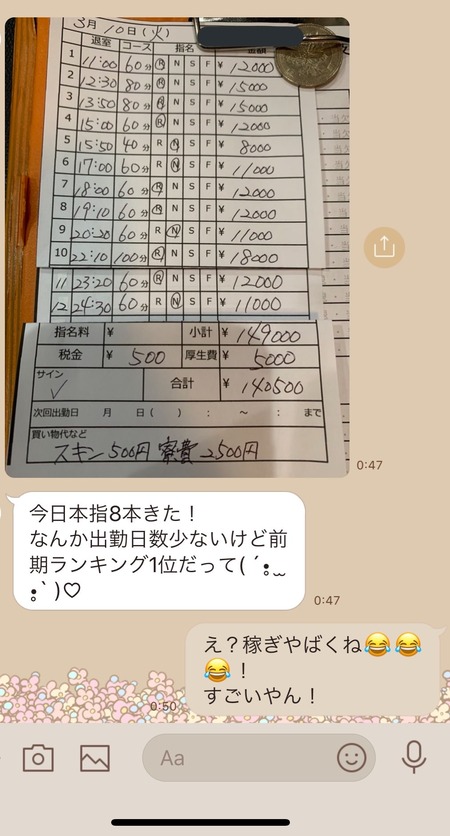 3月10日(火)
退室 コース 指名 金額
1 11:00 60分 Ⓡ N S F ¥12000
2 12:30 80分 Ⓡ N S F ¥15000
3 13:50 80分 Ⓡ N S F ¥15000
4 15:00 60分 Ⓡ N S F ¥12000
5 15:50 40分 R Ⓝ S F ¥8000
6 17:00 60分 R Ⓝ S F ¥11000
7 18:00 60分 Ⓡ N S F ¥12000
8 19:10 60分 Ⓡ N S F ¥12000
9 20:20 60分 R Ⓝ S F ¥11000
10 22:10 100分 Ⓡ N S F ¥18000
11 23:20 60分 Ⓡ N S F ¥12000
12 24:30 60分 R Ⓝ S F ¥11000
指名料 ¥ 小計 ¥149000
税金 ¥500 厚生費 ¥5000
サイン ✓ 合計 ¥140500
次回出勤日 月 日( ) : 〜 : まで
買い物代など
スキン500円 寮費2500円
0:47
今日本指8本きた!
なんか出勤日数少ないけど前
期ランキング1位だって( ´•̥ ̫
•̥` )♡
0:47
え?稼ぎやばくね😂😂
😂!
すごいやん!
0:50
Aa